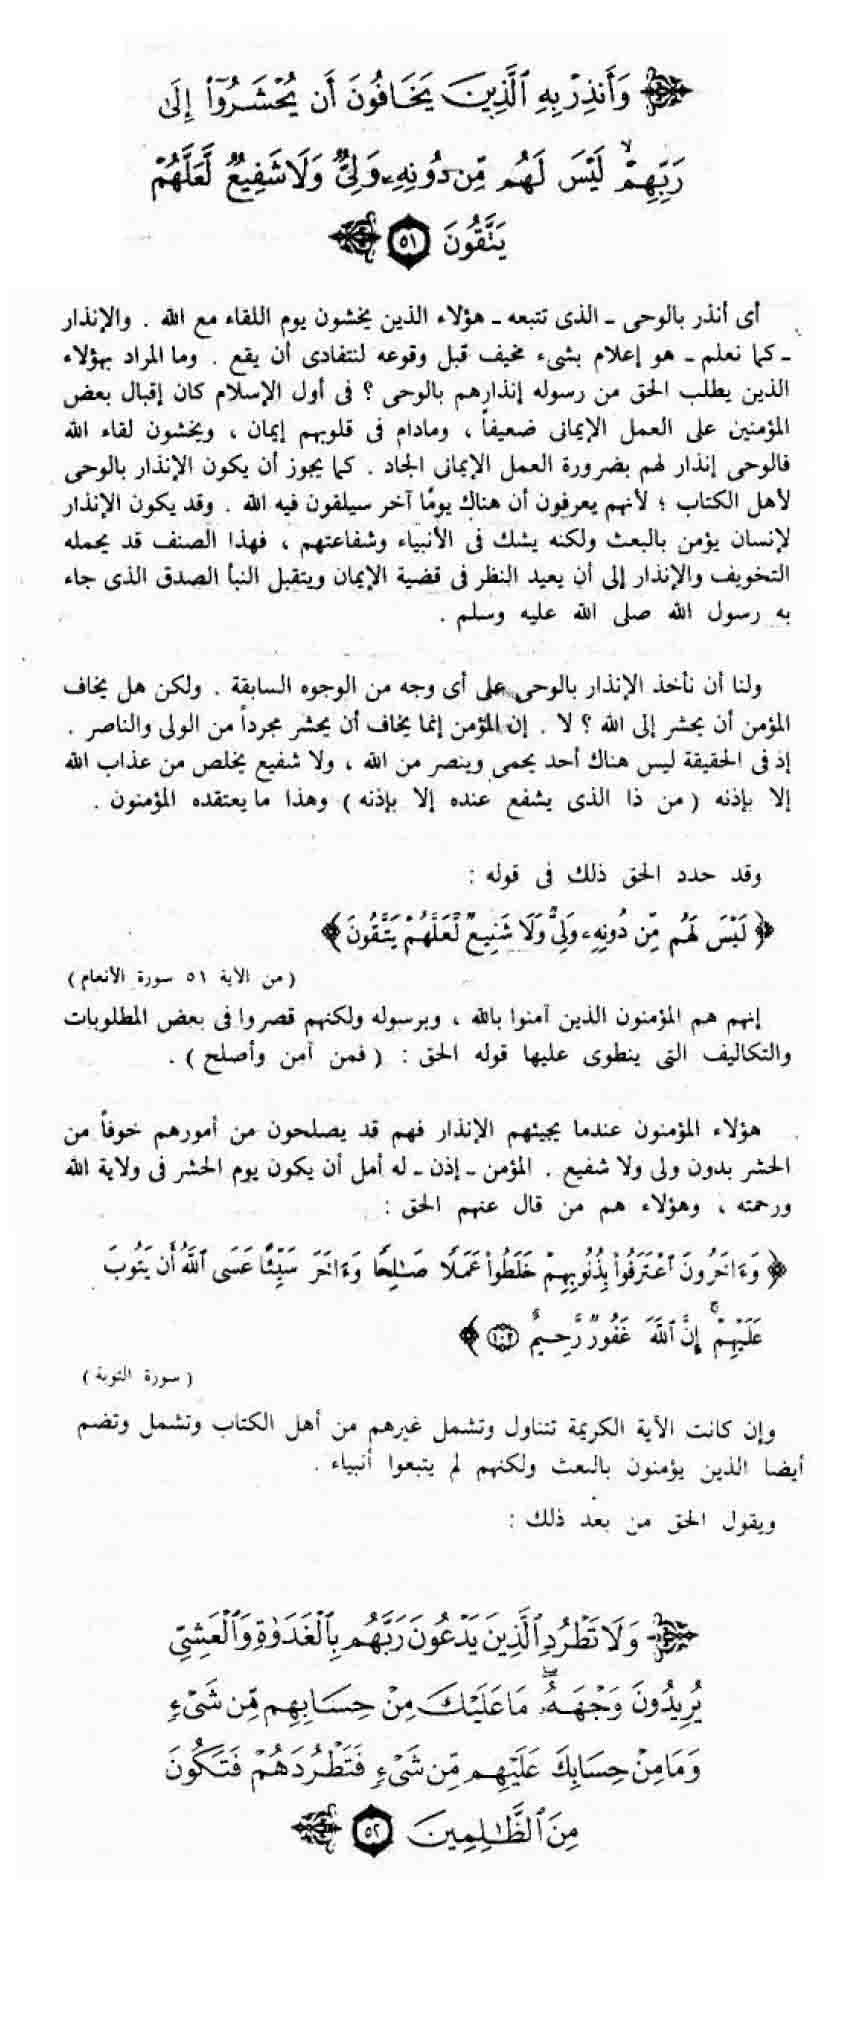 وَأَنذِرْ بِهِ ٱلَّذِينَ يَخَافُونَ أَن يُحْشَرُوٓا۟ إِلَىٰ
رَبِّهِمْ ۙ لَيْسَ لَهُم مِّن دُونِهِۦ وَلِىٌّ وَلَا شَفِيعٌ لَّعَلَّهُمْ
يَتَّقُونَ ٥١
أى أنذر بالوحى ـ الذى تتبعه ـ هؤلاء الذين يخشون يوم اللقاء مع الله . والإنذار
ـ كما نعلم ـ هو إعلام بشىء مخيف قبل وقوعه لنتفادى أن يقع . وما المراد بهؤلاء
الذين يطلب الحق من رسوله إنذارهم بالوحى ؟ فى أول الإسلام كان إقبال بعض
المؤمنين على العمل الإيمانى ضعيفاً ، ومادام فى قلوبهم إيمان ، ويخشون لقاء الله
فالوحى إنذار لهم بضرورة العمل الإيمانى الجاد . كما يجوز أن يكون الإنذار بالوحى
لأهل الكتاب ؛ لأنهم يعرفون أن هناك يومًا آخر سيلقون فيه الله . وقد يكون الإنذار
لإنسان يؤمن بالبعث ولكنه يشك فى الأنبياء وشفاعتهم ، فهذا الصنف قد يحمله
التخويف والإنذار إلى أن يعيد النظر فى قضية الإيمان ويتقبل النبأ الصدق الذى جاء
به رسول الله صلى الله عليه وسلم .
ولنا أن نأخذ الإنذار بالوحى على أى وجه من الوجوه السابقة . ولكن هل يخاف
المؤمن أن يحشر إلى الله ؟ لا . إن المؤمن إنما يخاف أن يحشر مجرداً من الولى والناصر .
إذ فى الحقيقة ليس هناك أحد يحمى وينصر من الله ، ولا شفيع يخلص من عذاب الله
إلا بإذنه ( من ذا الذى يشفع عنده إلا بإذنه ) وهذا ما يعتقده المؤمنون .
وقد حدد الحق ذلك فى قوله :
﴿ لَيْسَ لَهُم مِّن دُونِهِۦ وَلِىٌّ وَلَا شَفِيعٌ لَّعَلَّهُمْ يَتَّقُونَ ﴾
( من الآية ٥١ سورة الأنعام )
إنهم هم المؤمنون الذين آمنوا بالله ، وبرسوله ولكنهم قصروا فى بعض المطلوبات
والتكاليف التى ينطوى عليها قوله الحق : ( فمن آمن وأصلح ) .
هؤلاء المؤمنون عندما يجيئهم الإنذار فهم قد يصلحون من أمورهم خوفاً من
الحشر بدون ولى ولا شفيع . المؤمن ـ إذن ـ له أمل أن يكون يوم الحشر فى ولاية الله
ورحمته ، وهؤلاء هم من قال عنهم الحق :
﴿ وَءَاخَرُونَ ٱعْتَرَفُوا۟ بِذُنُوبِهِمْ خَلَطُوا۟ عَمَلًا صَـٰلِحًا وَءَاخَرَ سَيِّئًا عَسَى ٱللَّهُ أَن يَتُوبَ
عَلَيْهِمْ ۚ إِنَّ ٱللَّهَ غَفُورٌ رَّحِيمٌ ١٠٢ ﴾
( سورة التوبة )
وإن كانت الآية الكريمة تتناول وتشمل غيرهم من أهل الكتاب وتشمل وتضم
أيضا الذين يؤمنون بالبعث ولكنهم لم يتبعوا أنبياء .
ويقول الحق من بعد ذلك :
وَلَا تَطْرُدِ ٱلَّذِينَ يَدْعُونَ رَبَّهُم بِٱلْغَدَوٰةِ وَٱلْعَشِىِّ
يُرِيدُونَ وَجْهَهُۥ ۖ مَا عَلَيْكَ مِنْ حِسَابِهِم مِّن شَىْءٍ
وَمَا مِنْ حِسَابِكَ عَلَيْهِم مِّن شَىْءٍ فَتَطْرُدَهُمْ فَتَكُونَ
مِنَ ٱلظَّـٰلِمِينَ ٥٢